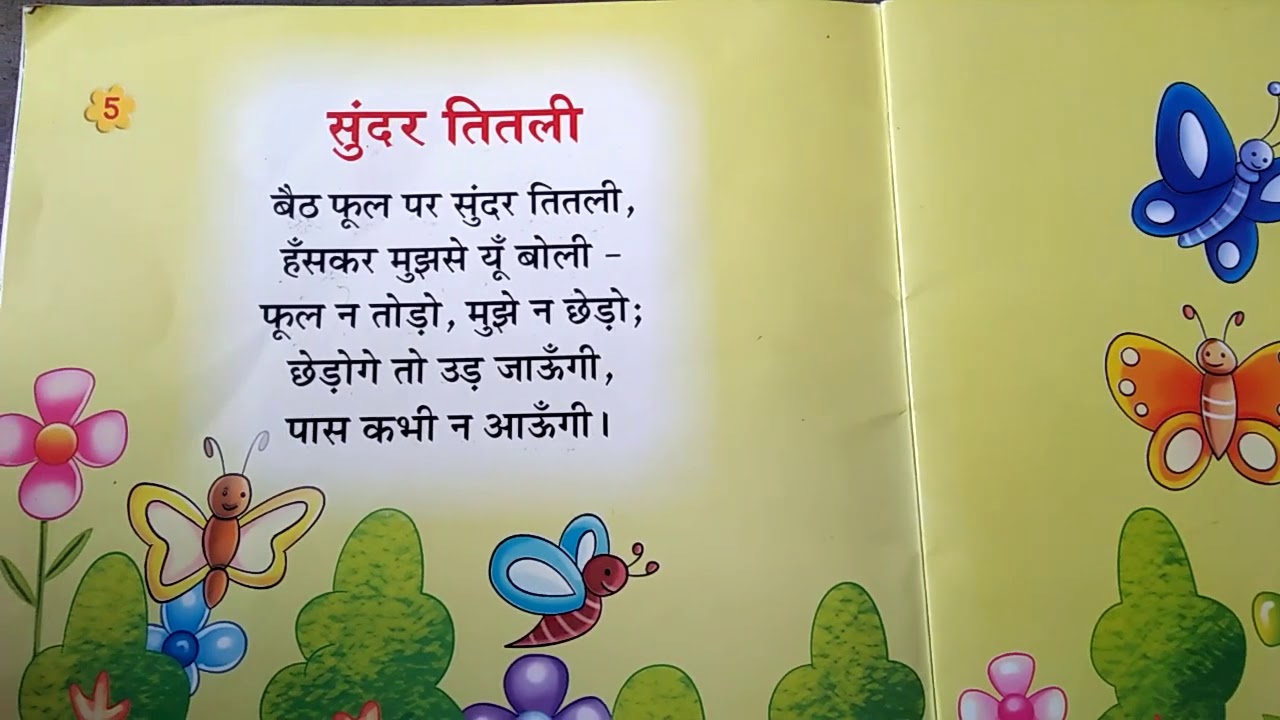 5
सुंदर तितली
बैठ फूल पर सुंदर तितली,
हँसकर मुझसे यूँ बोली -
फूल न तोड़ो, मुझे न छेड़ो;
छेड़ोगे तो उड़ जाऊँगी,
पास कभी न आऊँगी।